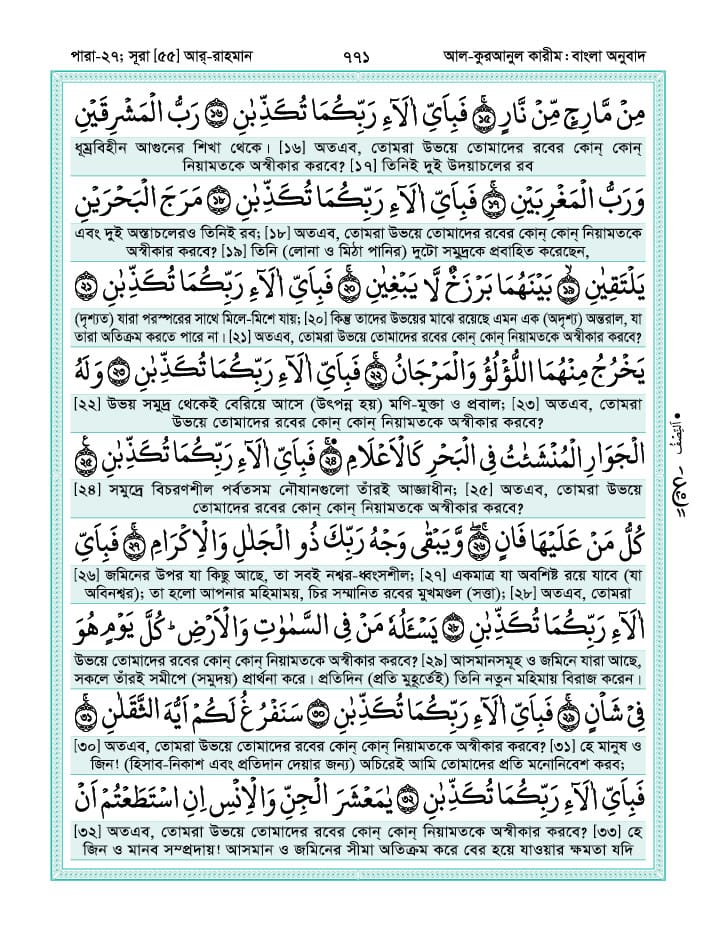 পারা-২৭; সূরা [৫৫] আর্-রাহমান
৭৭১
আল-কুরআনুল কারীম : বাংলা অনুবাদ
مِنْ مَّارِجٍ مِّنْ نَّارٍ ۚ ﴿۱۵﴾ فَبِاَيِّ اٰلَآءِ رَبِّكُمَا تُكَذِّبٰنِ ﴿۱۶﴾ رَبُّ الْمَشْرِقَيْنِ
ধূম্রবিহীন আগুনের শিখা থেকে। [১৬] অতএব, তোমরা উভয়ে তোমাদের রবের কোন্ কোন্
নিয়ামতকে অস্বীকার করবে? [১৭] তিনিই দুই উদয়াচলের রব
وَرَبُّ الْمَغْرِبَيْنِ ۚ ﴿۱۷﴾ فَبِاَيِّ اٰلَآءِ رَبِّكُمَا تُكَذِّبٰنِ ﴿۱۸﴾ مَرَجَ الْبَحْرَيْنِ
এবং দুই অস্তাচলেরও তিনিই রব; [১৮] অতএব, তোমরা উভয়ে তোমাদের রবের কোন্ কোন্ নিয়ামতকে
অস্বীকার করবে? [১৯] তিনি (লোনা ও মিঠা পানির) দুটো সমুদ্রকে প্রবাহিত করেছেন,
يَلْتَقِيٰنِ ۙ ﴿۱۹﴾ بَيْنَهُمَا بَرْزَخٌ لَّا يَبْغِيٰنِ ۚ ﴿۲۰﴾ فَبِاَيِّ اٰلَآءِ رَبِّكُمَا تُكَذِّبٰنِ ﴿۲۱﴾
(দৃশ্যত) যারা পরস্পরের সাথে মিলে-মিশে যায়; [২০] কিন্তু তাদের উভয়ের মাঝে রয়েছে এমন এক (অদৃশ্য) অন্তরাল, যা
তারা অতিক্রম করতে পারে না। [২১] অতএব, তোমরা উভয়ে তোমাদের রবের কোন্ কোন্ নিয়ামতকে অস্বীকার করবে?
يَخْرُجُ مِنْهُمَا اللُّؤْلُؤُ وَالْمَرْجَانُ ۚ ﴿۲۲﴾ فَبِاَيِّ اٰلَآءِ رَبِّكُمَا تُكَذِّبٰنِ ﴿۲۳﴾ وَلَهُ
[২২] উভয় সমুদ্র থেকেই বেরিয়ে আসে (উৎপন্ন হয়) মণি-মুক্তা ও প্রবাল; [২৩] অতএব, তোমরা
উভয়ে তোমাদের রবের কোন্ কোন্ নিয়ামতকে অস্বীকার করবে?
الْجَوَارِ الْمُنْشَـٰٔتُ فِي الْبَحْرِ كَالْاَعْلَامِ ۚ ﴿۲۴﴾ فَبِاَيِّ اٰلَآءِ رَبِّكُمَا تُكَذِّبٰنِ ﴿۲۵﴾
[২৪] সমুদ্রে বিচরণশীল পর্বতসম নৌযানগুলো তাঁরই আজ্ঞাধীন; [২৫] অতএব, তোমরা উভয়ে
তোমাদের রবের কোন্ কোন্ নিয়ামতকে অস্বীকার করবে?
كُلُّ مَنْ عَلَيْهَا فَانٍ ۚ ﴿۲۶﴾ وَّيَبْقٰى وَجْهُ رَبِّكَ ذُو الْجَلٰلِ وَالْاِكْرَامِ ۚ ﴿۲۷﴾ فَبِاَيِّ
[২৬] জমিনের উপর যা কিছু আছে, তা সবই নশ্বর-ধ্বংসশীল; [২৭] একমাত্র যা অবশিষ্ট রয়ে যাবে (যা
অবিনশ্বর); তা হলো আপনার মহিমাময়, চির সম্মানিত রবের মুখমণ্ডল (সত্তা); [২৮] অতএব, তোমরা
اٰلَآءِ رَبِّكُمَا تُكَذِّبٰنِ ﴿۲۸﴾ يَسْـَٔلُهٗ مَنْ فِي السَّمٰوٰتِ وَالْاَرْضِ ؕ كُلَّ يَوْمٍ هُوَ
উভয়ে তোমাদের রবের কোন্ কোন্ নিয়ামতকে অস্বীকার করবে? [২৯] আসমানসমূহ ও জমিনে যারা আছে,
সকলে তাঁরই সমীপে (সমুদয়) প্রার্থনা করে। প্রতিদিন (প্রতি মুহূর্তেই) তিনি নতুন মহিমায় বিরাজ করেন।
فِيْ شَاْنٍ ۚ ﴿۲۹﴾ فَبِاَيِّ اٰلَآءِ رَبِّكُمَا تُكَذِّبٰنِ ﴿۳۰﴾ سَنَفْرُغُ لَكُمْ اَيُّهَ الثَّقَلٰنِ ۚ ﴿۳۱﴾
[৩০] অতএব, তোমরা উভয়ে তোমাদের রবের কোন্ কোন্ নিয়ামতকে অস্বীকার করবে? [৩১] হে মানুষ ও
জিন! (হিসাব-নিকাশ এবং প্রতিদান দেয়ার জন্য) অচিরেই আমি তোমাদের প্রতি মনোনিবেশ করব;
فَبِاَيِّ اٰلَآءِ رَبِّكُمَا تُكَذِّبٰنِ ﴿۳۲﴾ يٰمَعْشَرَ الْجِنِّ وَالْاِنْسِ اِنِ اسْتَطَعْتُمْ اَنْ
[৩২] অতএব, তোমরা উভয়ে তোমাদের রবের কোন্ কোন্ নিয়ামতকে অস্বীকার করবে? [৩৩] হে
জিন ও মানব সম্প্রদায়! আসমান ও জমিনের সীমা অতিক্রম করে বের হয়ে যাওয়ার ক্ষমতা যদি
اَلنِّصْفُ